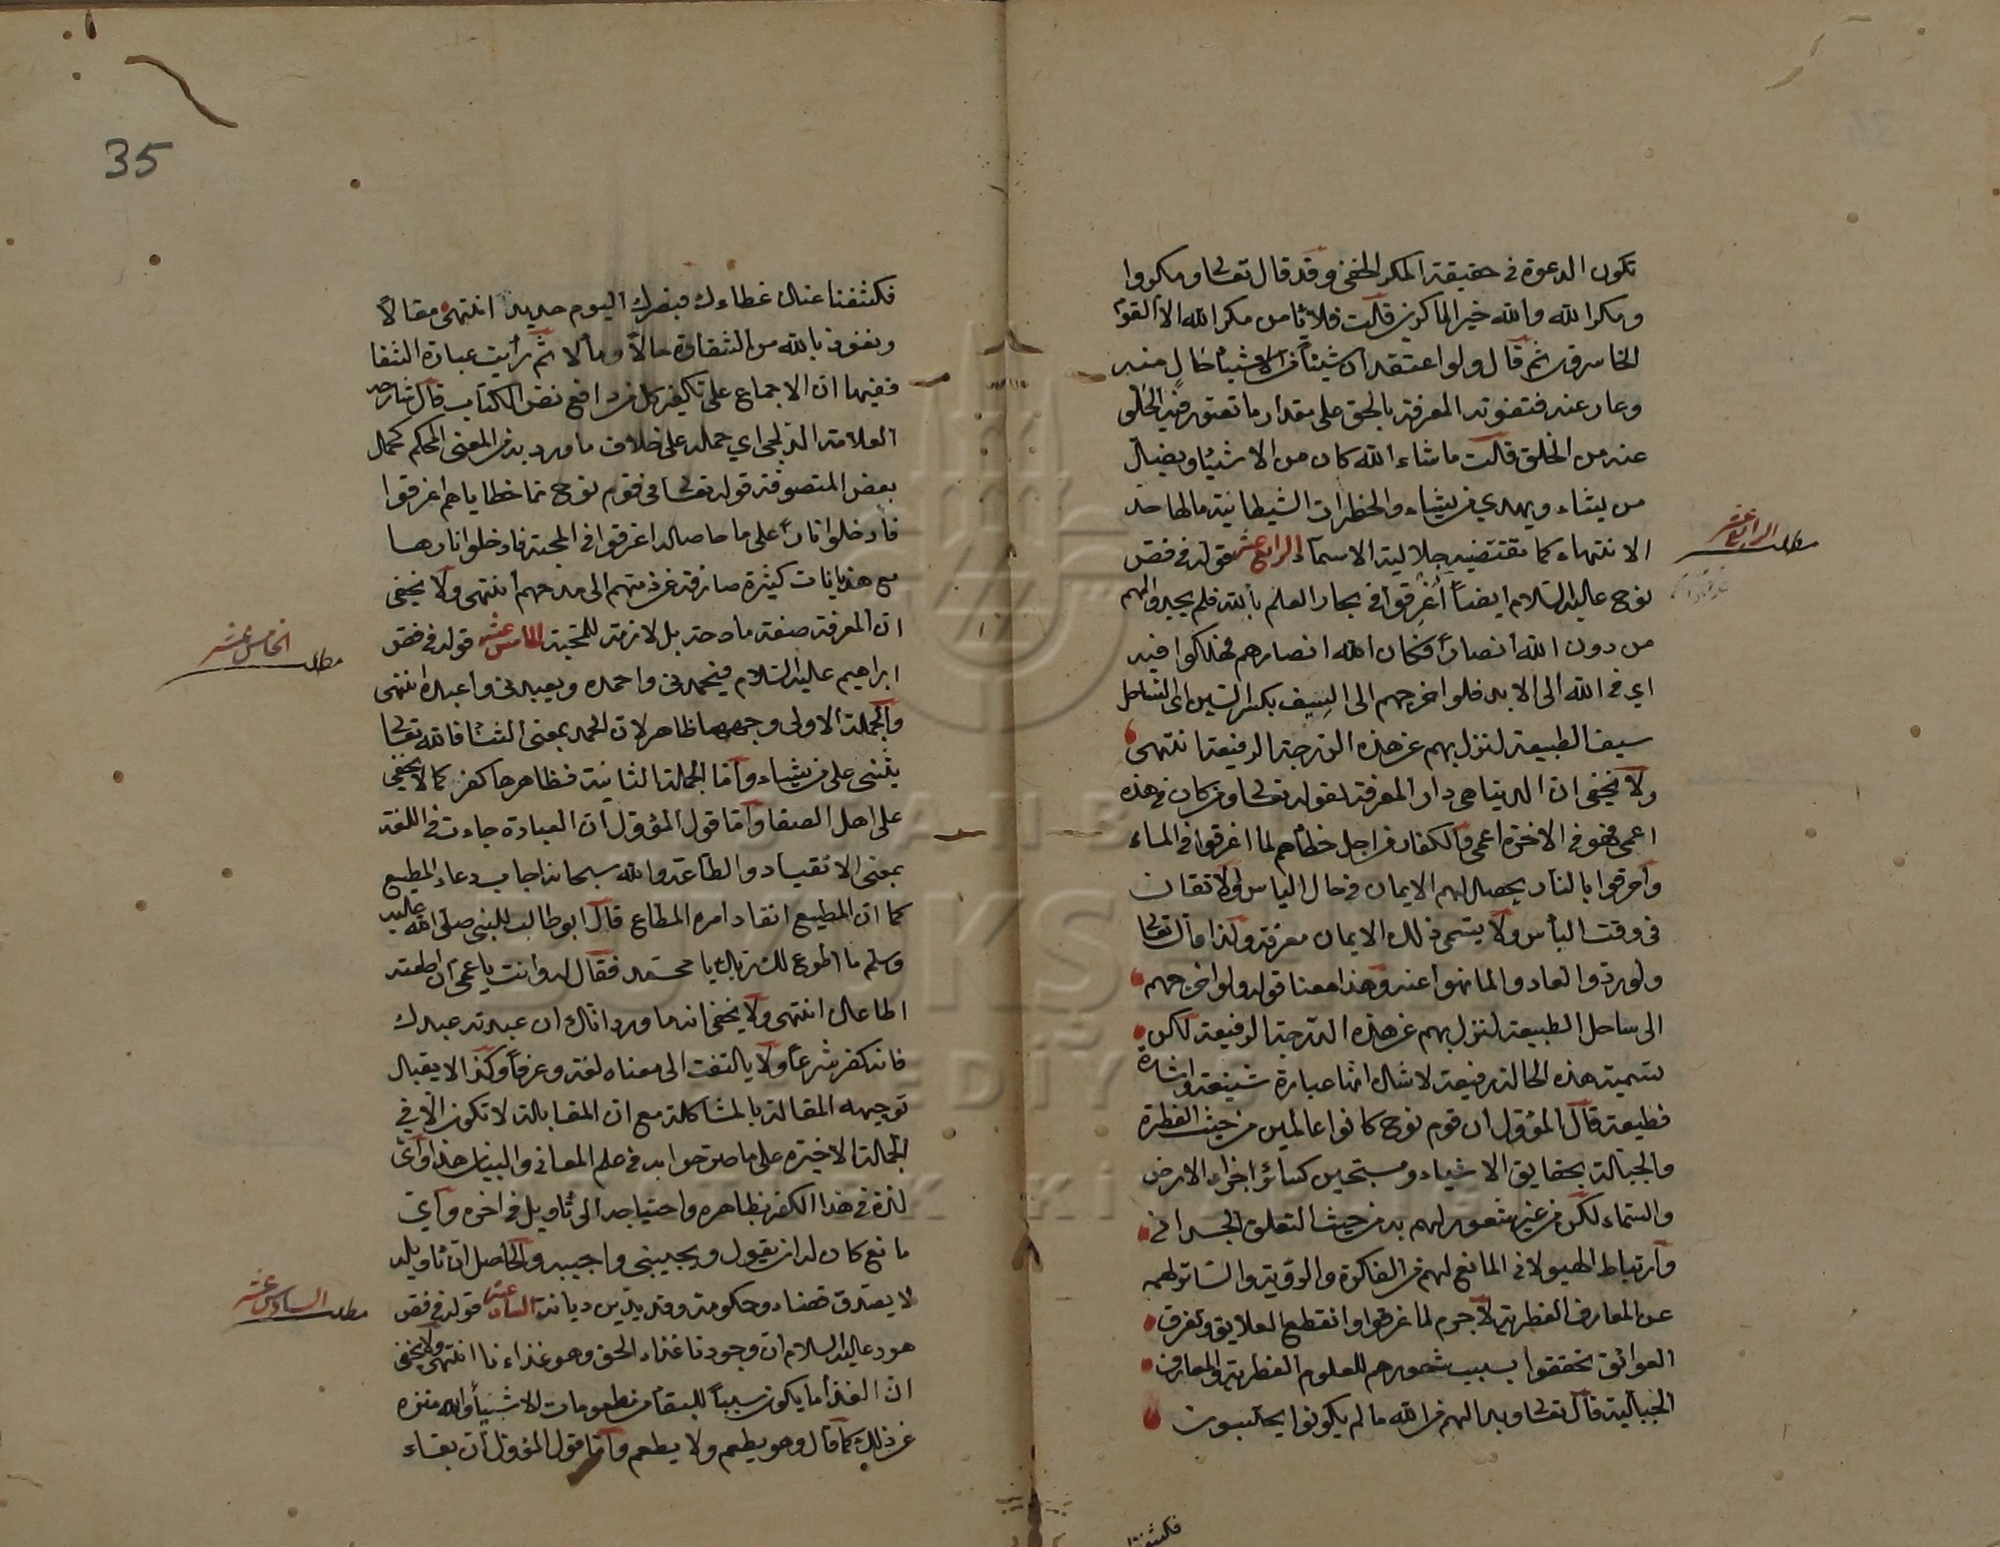 تكون الدعوة في حقيقة المكر الخفي وقد قال تعالى ومكروا
ومكر الله والله خير الماكرين قلت فلا يأمن مكر الله الا القوم
الخاسرون ثم قال ولو اعتقد ان شيئا من الاشياء خال منه
وعار عنه فتفوته المعرفة بالحق على مقدار ما تعتور فيه الخلو
عنه من الخلق قلت ما شاء الله كان من الاشياء ويضل
من يشاء ويهدي من يشاء والخطرات الشيطانية مالها حد
الانتهاء كما تقتضيه جلالية الاسماء الرابع عشر قوله في فص
نوح عليه السلام ايضا أغرقوا في بحار العلم بالله فلم يجدوا لهم
من دون الله أنصارا فكان الله انصارهم فهلكوا فيه
اي في الله الى الابد فلو اخرجهم الى السيف بكسر السين اى الساحل
سيف الطبيعة لنزل بهم عن هذه الدرجة الرفيعة انتهى
ولا يخفى ان الدنيا هي دار المعرفة لقوله تعالى ومن كان في هذه
اعمى فهو في الاخرة اعمى والكفار من اجل خطأهم لما اغرقوا في الماء
وأحرقوا بالنار يحصل لهم الايمان في حال الياس ولا تقان
في وقت البأس ولا يسمى ذلك الايمان معرفة ولذا قال تعالى
ولو ردوا لعادوا لما نهوا عنه وهذا معنا قوله ولو اخرجهم
الى ساحل الطبيعة لنزل بهم عن هذه الدرجة الرفيعة لكن
تسمية هذه الحالة رفيعة لا شك انها عبارة شنيعة واشارة
فظيعة قال المؤول ان قوم نوح كانوا عالمين من حيث الفطرة
والجبلة بحقايق الاشياء ومسبحين كسائر اجزاء الارض
والسماء لكن من غير شعور لهم به من حيث التعلق الجسماني
وارتباط الهيولاني المانع لهم من الفاكرة والوقية والساتر لهم
عن المعارف الفطرية لا جرم لما غرقوا وانقطع العلايق وتفرق
العوائق تحققوا بسبب شعورهم للعلوم الفطرية والمعارف
الجبلية قال تعالى وبدا لهم من الله ما لم يكونوا يحتسبون
مطلب الرابع عشر
فكشفنا
35
فكشفنا عنك غطاءك فبصرك اليوم حديد انتهى مقالا
ونعوذ بالله من الشقاوة حالا ومألا ثم رأيت عبارة الشفا
ففيها ان الاجماع على تكفير كل من دافع نص الكتاب قال شارحه
العلامة الدلجي اي حمله على خلاف ما ورد به من المعنى المحكم كحمل
بعض المتصوفة قوله تعالى في قوم نوح مما خطاياهم اغرقوا
فأدخلوا نارا على ما حاصله اغرقوا في المحبة فادخلوا نارها
مع هذيانات كثيرة صارفة عن ذمتهم الى مدحهم انتهى ولا يخفى
ان المعرفة صفة مادحة بل لازمة للمحبة الخامس عشر قوله في فص
ابراهيم عليه السلام فيحمدني واحمده ويعبدني واعبده انتهى
والجملة الاولى وجهها ظاهر لان الحمد بمعنى الثناء فالله تعالى
يثني على من يشاء وأما الجملة الثانية فظاهرها كفر كما لا يخفى
على اهل الصفا وأما قول المؤول ان العبادة جاءت في اللغة
بمعنى الانقياد والطاعة والله سبحانه اجاب دعاء المطيع
كما ان المطيع انقاد امره المطاع قال ابو طالب للنبي صلى الله عليه
وسلم ما اطوع لك ربك يا محمد فقال له وانت يا عمي ان اطعته
اطاعك انتهى ولا يخفى انه ما ورد انك ان عبدته عبدك
فانه كفر شرعا ولا يالتفت الى معناه لغة وعرفا وكذا لا يقبل
توجيهه المقالة بالمشاكلة مع ان المقابلة لا تكون الا في
الجملة الاخيرة على ما صرحوا به في علم المعاني والبيان هذا وأي
لذة في هذا الكفر بظاهره واحتياجه الى تأويل في اخره وأي
مانع كان له ان يقول ويجيبني واجيبه والحاصل ان تأويله
لا يصدق قضاء وحكومة وقد يدين ديانة السادس عشر قوله في فص
هود عليه السلام ان وجودنا غذاء الحق وهو غذاءنا انتهى ولا يخفى
ان الغذاء ما يكون سببا للبقاء من مطعومات الاشياء والله منزه
عن ذلك كما قال وهو يطعم ولا يطعم وأما قول المؤول ان بقاء
مطلب الخامس عشر
مطلب السادس عشر